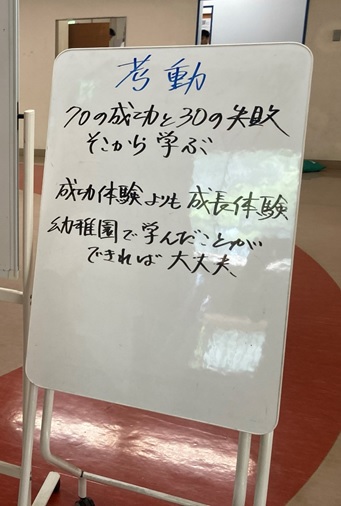 考動
70の成功と30の失敗
そこから学ぶ
成功体験よりも成長体験
幼稚園で学んだことが
できれば大丈夫、